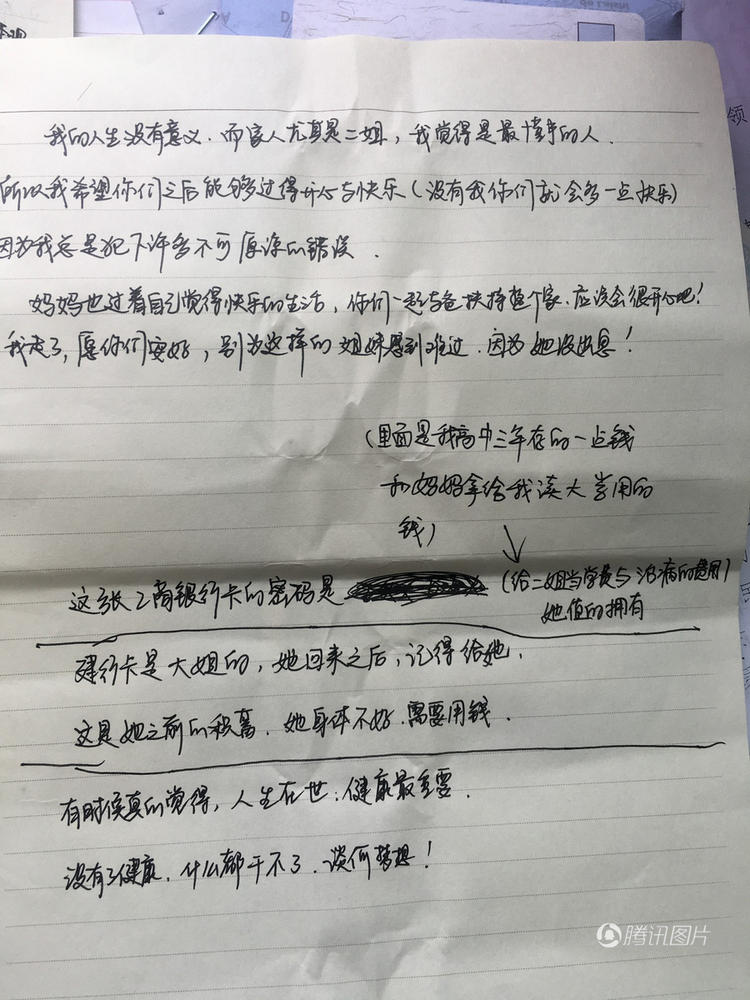 我的人生没有意义.而家人尤其是二姐,我觉得是最博学的人.
所以我希望你们之后能够过得开心与快乐(没有我你们就会多一点快乐)
因为我总是犯下许多不可原谅的错误.
妈妈也过着自己觉得快乐的生活,你们一起与爸扶持整个家.应该会很开心吧!
我走了,愿你们安好,别为这样的姐妹感到难过.因为她没出息!
(里面是我高中三年存的一点钱
和妈妈拿给我读大学用的
钱)
这张工商银行卡的密码是
(给二姐当学费与治病的费用)
她值的拥有
建行卡是大姐的,她回来之后,记得给她.
这是她之前的积蓄.她身体不好.需要用钱.
有时候真的觉得,人生在世:健康最重要.
没有了健康.什么都干不了.谈何梦想!
领
腾讯图片